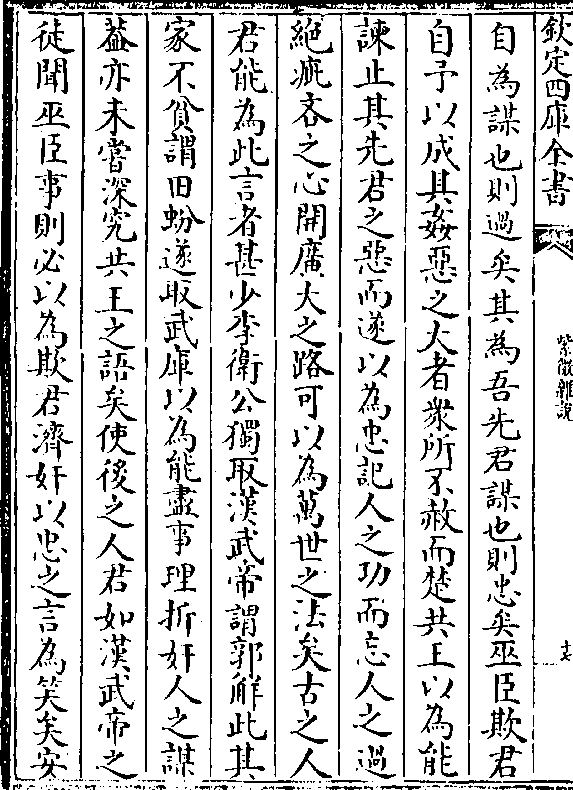 欽定四庫全書
紫微雜說
十七
自為謀也則過矣其為吾先君謀也則忠矣巫臣欺君
自予以成其姦惡之大者衆所不赦而楚共王以為能
諫止其先君之惡而遂以為忠記人之功而忘人之過
絕疵吝之心開廣大之路可以為萬世之法矣古之人
君能為此言者甚少李衛公獨取漢武帝謂郭解此其
家不貧謂田蚡遂取武庫以為能盡事理折奸人之謀
葢亦未嘗深究共王之語矣使後之人君如漢武帝之
徒聞巫臣事則必以為欺君濟奸以忠之言為笑矣安